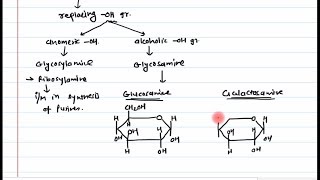 replacing -OH gr.
anomeric -OH.
alcoholic -OH gr.
Glycosylamine
Glycosamine
→ Ribosylamine
I/M in synthesis
of purines.
Glucosamine
Galactosamine
CH₂OH
O
O
H
H
H
H
OH
OH
OH
OH
OH